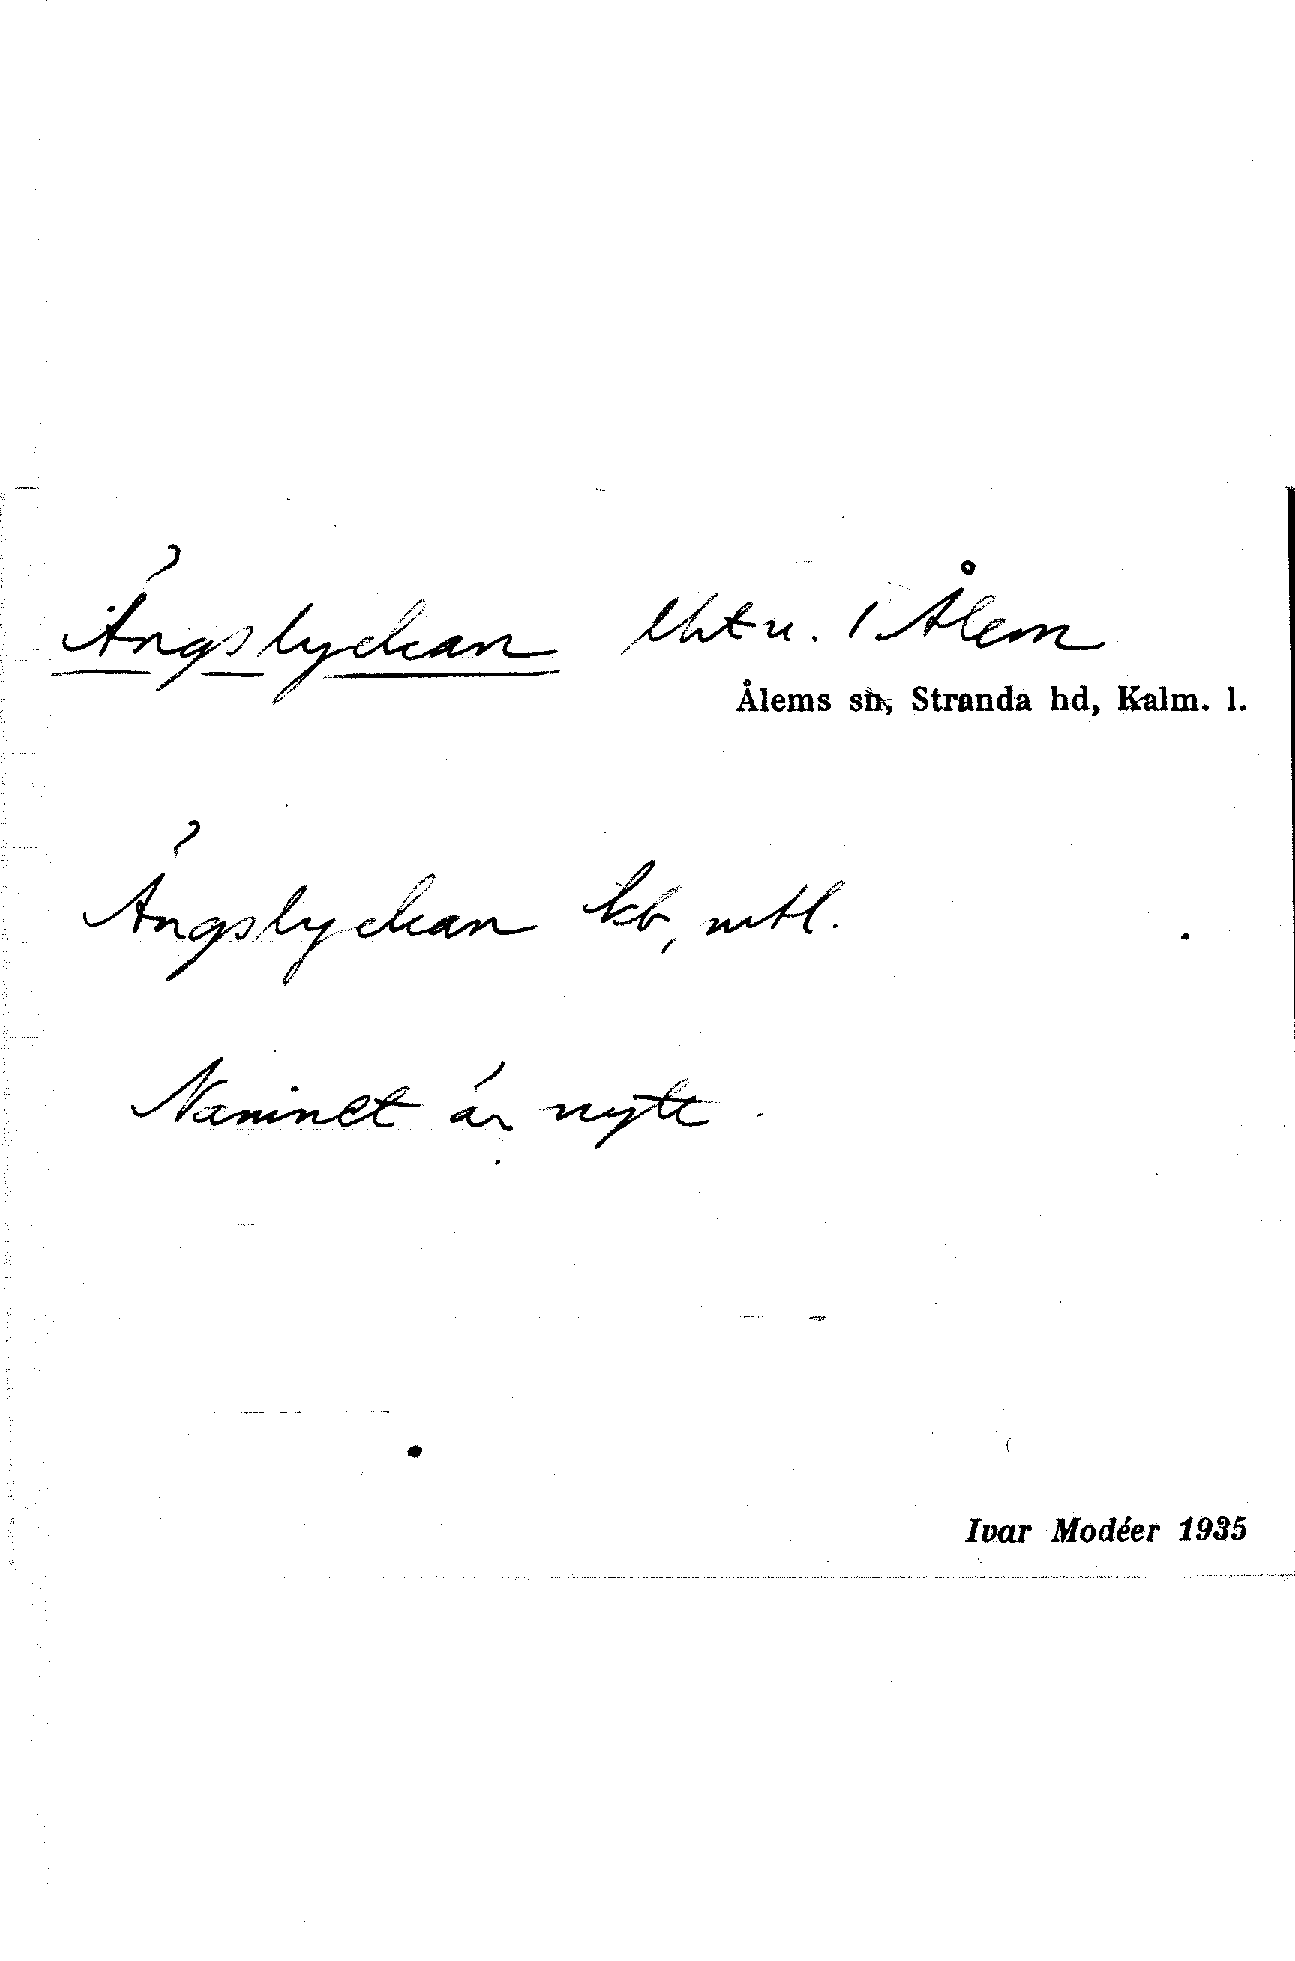 Ängslyckan lht u. 1 Ålem
Ålems sn, Stranda hd, Kalm. l.
Ängslyckan kb, mtl.
Namnet är nytt.
Ivar Modéer 1935